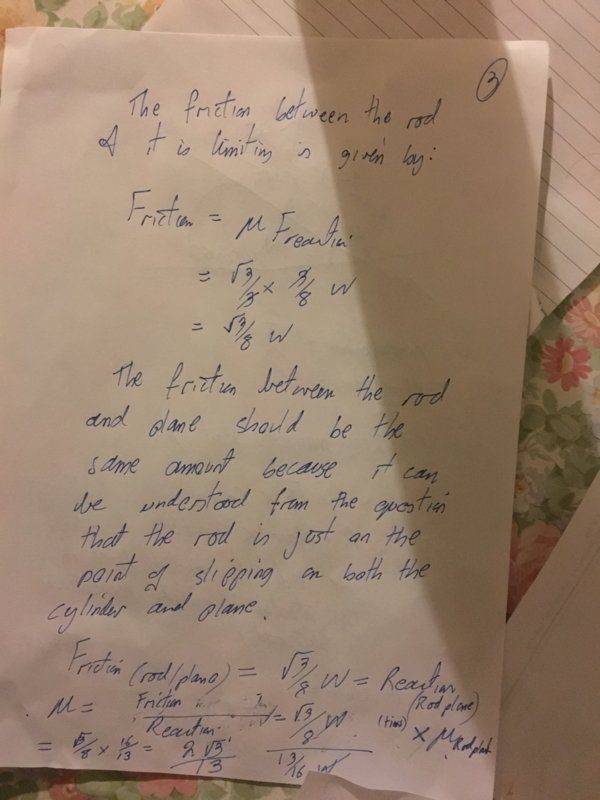 3
The friction between the rod
& it is limiting is given by:
Friction = μ Freaction
= √3/3 × 3/8 W
= √3/8 W
The friction between the rod
and plane should be the
same amount because it can
be understood from the question
that the rod is just on the
point of slipping on both the
cylinder and plane.
Friction (rod/plane) = √3/8 W = Reaction (Rod plane)
μ = Friction / Reaction = √3/8 W / 13/16 W (times) × μ Rod plane
= √3/8 × 16/13 = 2√3/13